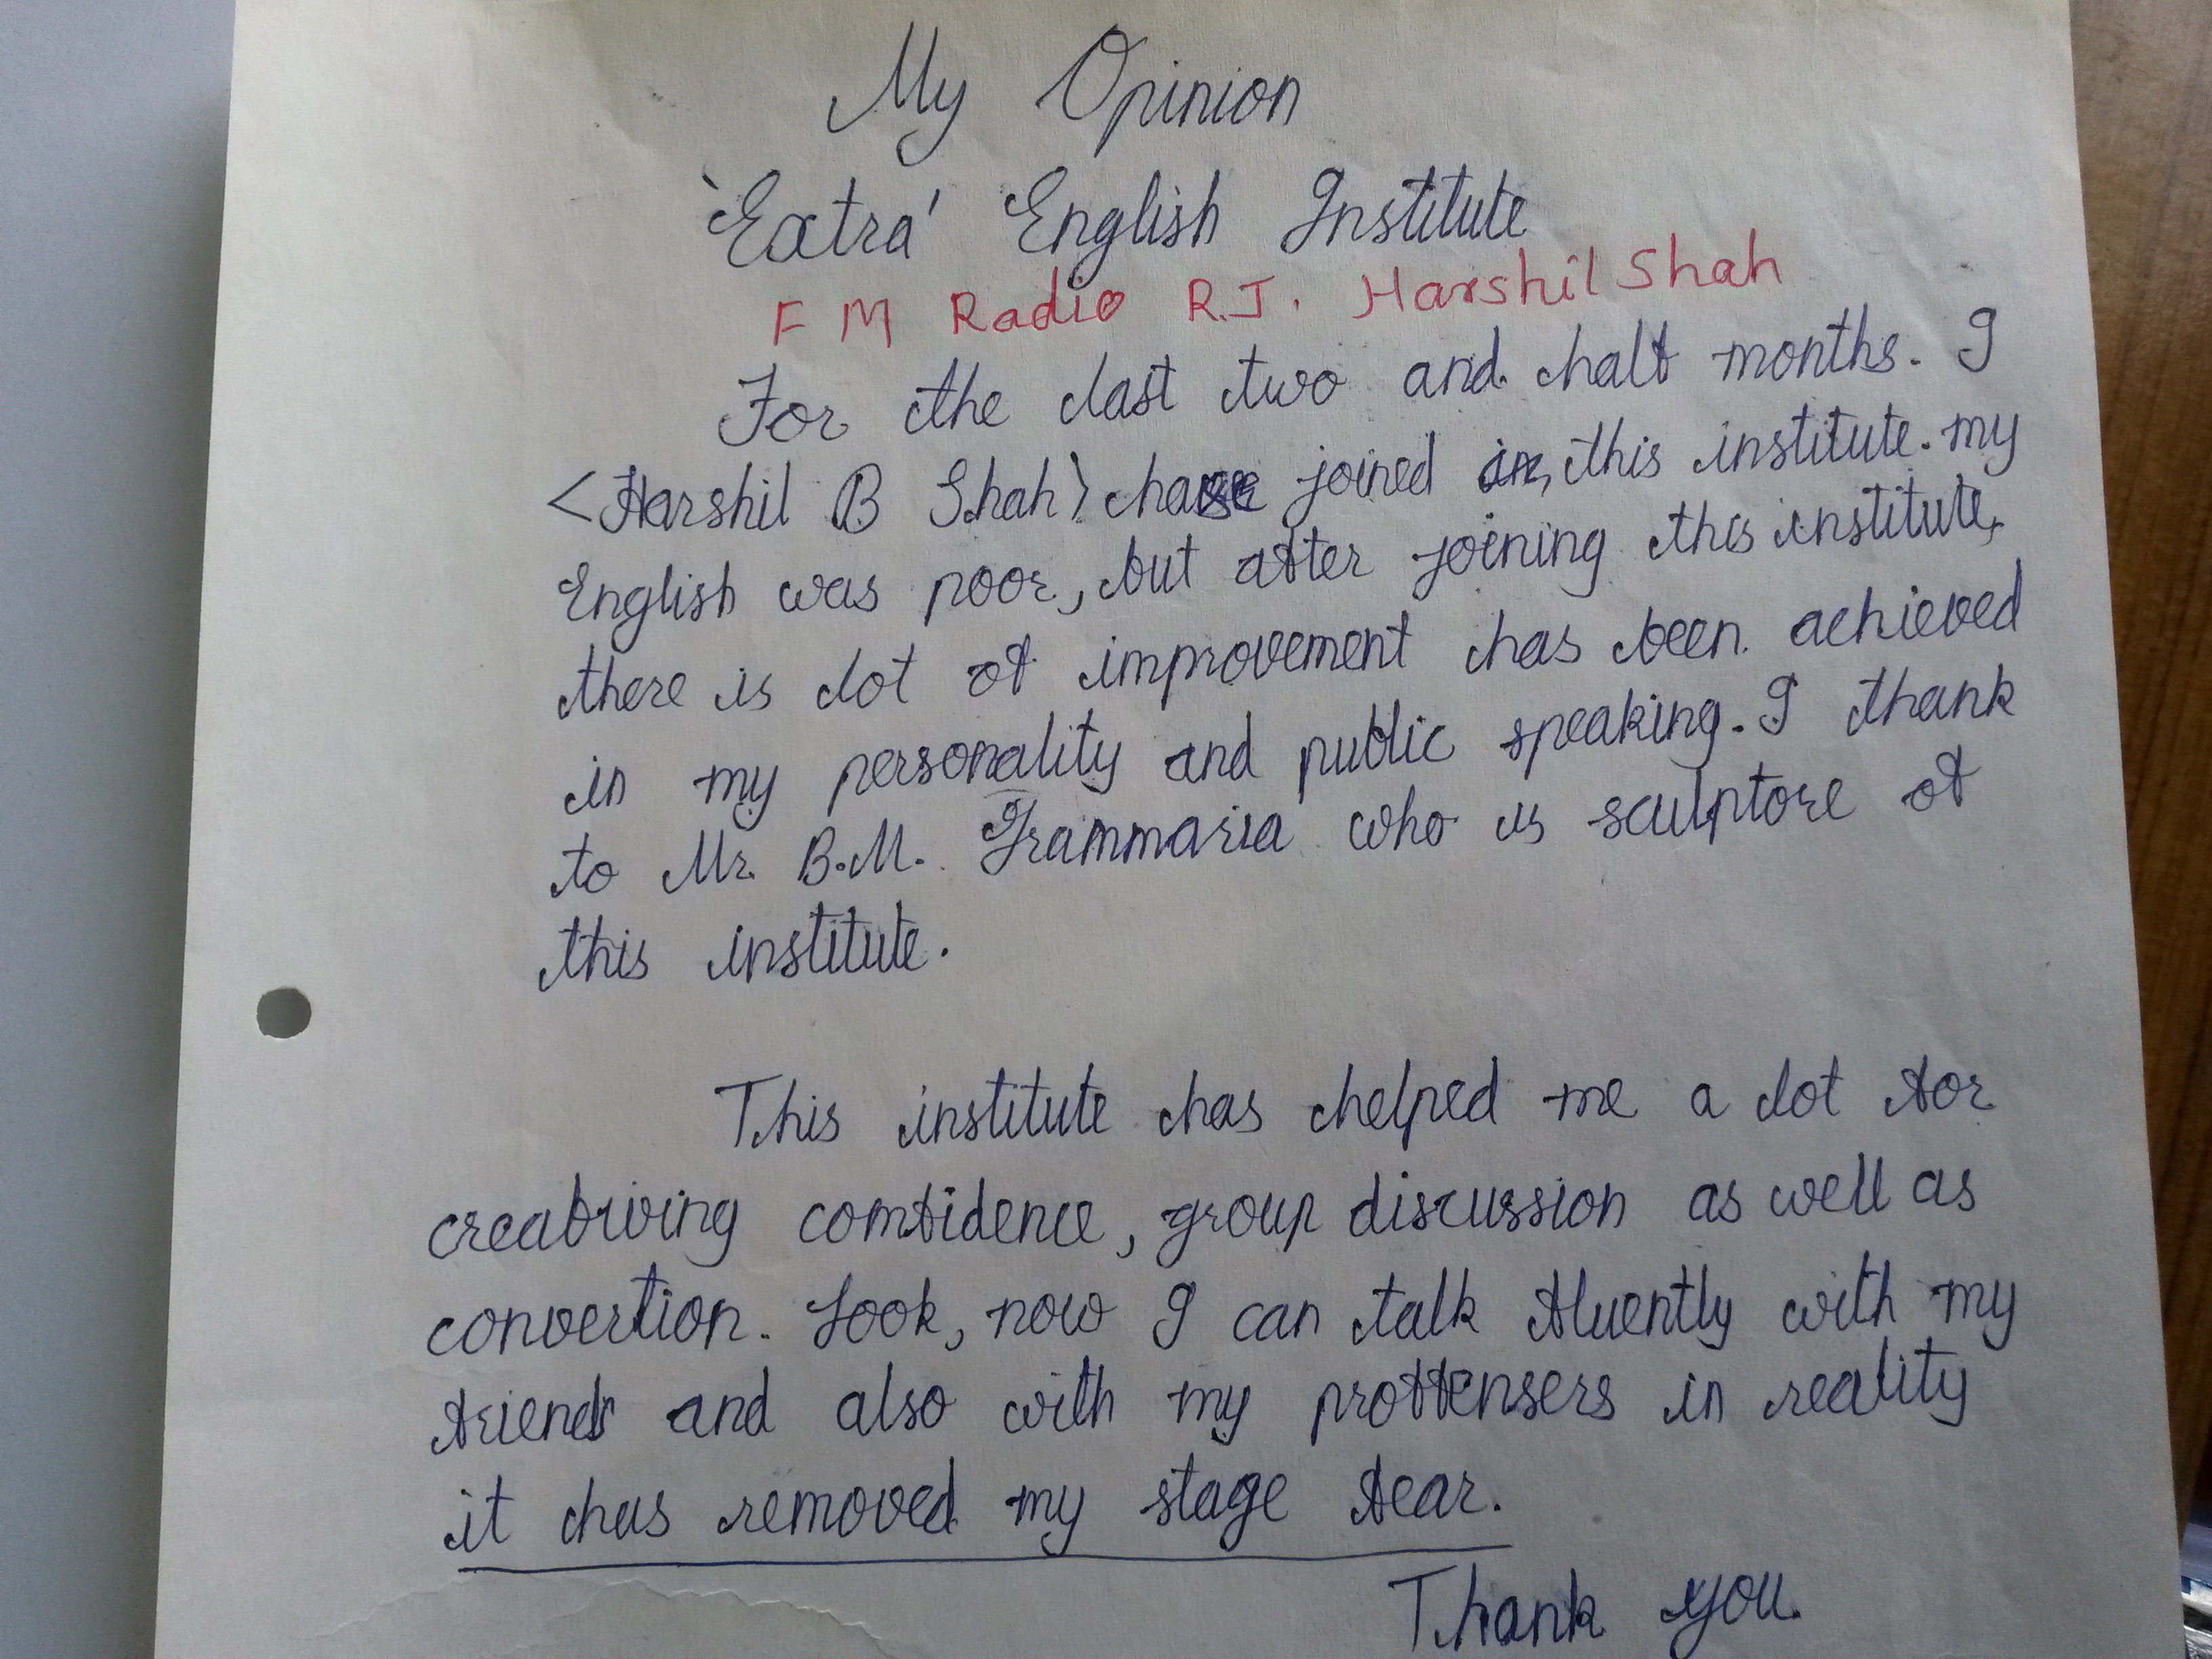 My Opinion
'Extra' English Institute
FM Radio R.J. Harshil Shah
For the last two and half months. I
<Harshil B Shah> have joined in, this institute. my
English was poor, but after joining this institute,
there is lot of improvement has been achieved
in my personality and public speaking. I thank
to Mr. B.M. Grammaria who is sculptore of
this institute.
This institute has helped me a lot for
confidence, group discussion as well as
convertion. Look, now I can talk fluently with my
friends and also with my proffensers in reality
it has removed my stage fear.
Thank you.